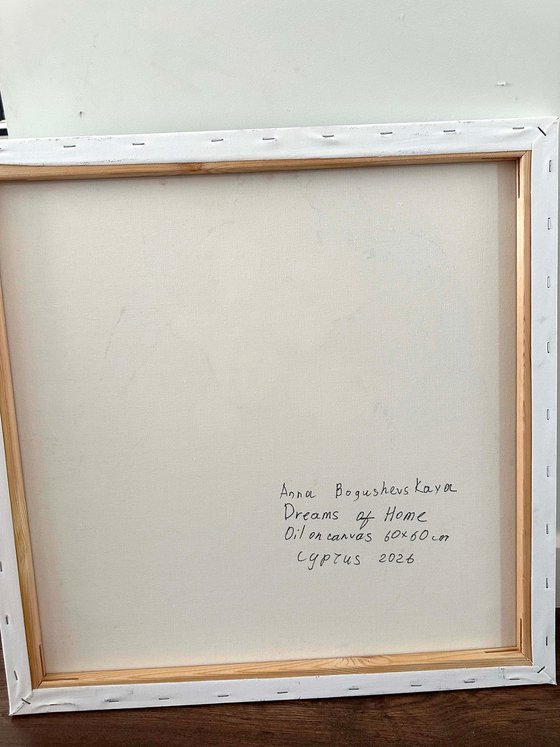 Anna Bogushevskaya
Dreams of Home
Oil on canvas 60x60 cm
Cyprus 2026